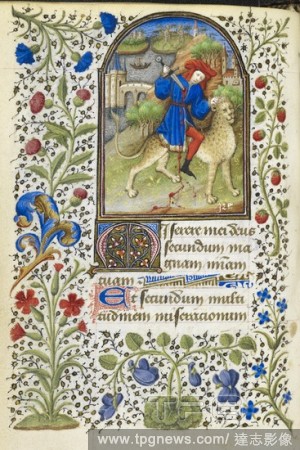 Miserere mei deus
secundum ma
gnam miam
tuam
Et secundum multi
tudinem miseracionum
www.tpgnews.com / 達志影像